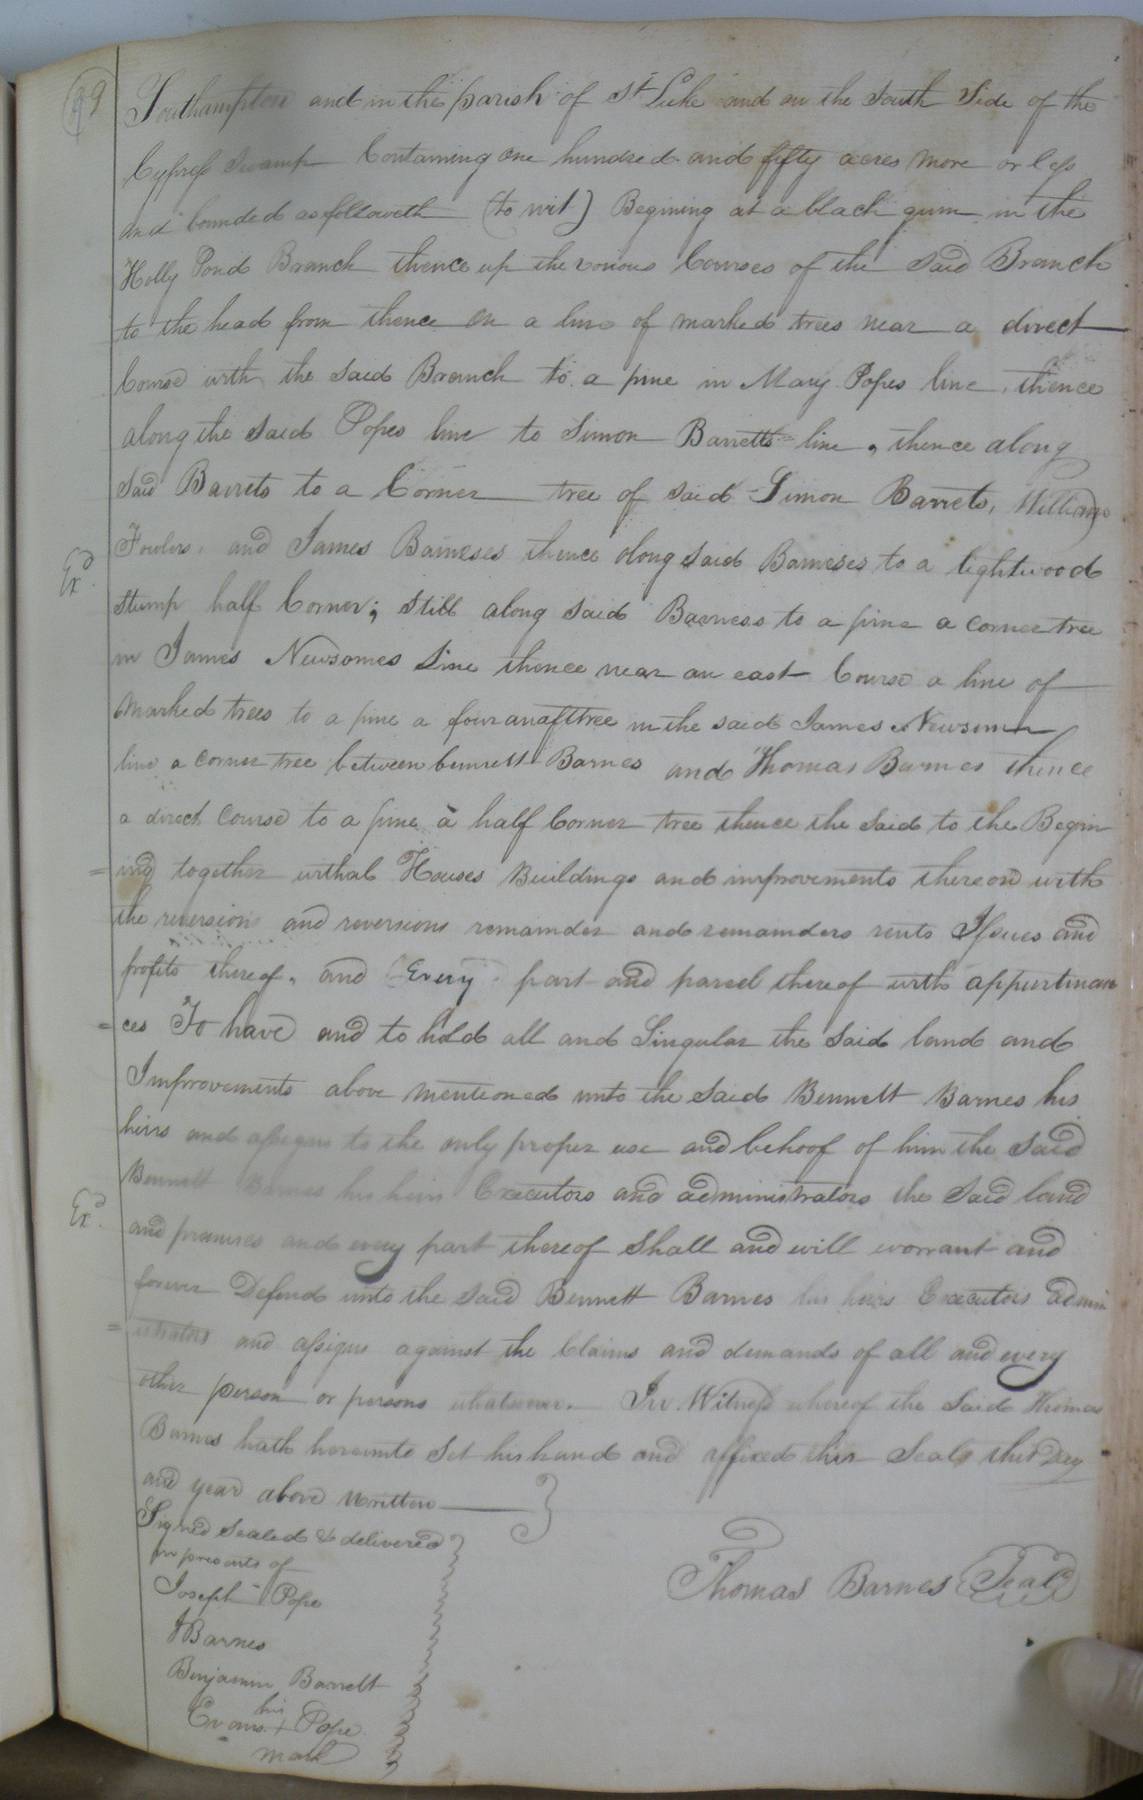 99
Southampton and in the parish of St Luke and on the South Side of the
Cypress Swamp Containing one hundred and fifty acres more or less
and bounded as followeth (to wit) Begining at a black gum in the
Holly Pond Branch thence up the various Courses of the said Branch
to the head from thence on a line of marked trees near a direct
Course with the said Branch to a pine in Mary Popes line, thence
along the said Popes line to Simon Barretts line, thence along
said Barrets to a Corner tree of said Simon Barrets, William
Fowlers, and James Barneses thence along said Barneses to a lightwood
Exd.
stump half Corner; still along said Barness to a pine a corner tree
in James Newsomes Line thence near an east Course a line of
marked trees to a pine a four an aft tree in the said James Newsom
line a corner tree between bennett Barnes and Thomas Barnes thence
a direct Course to a pine a half Corner tree thence the said to the Begin
=ing together withal Houses Buildings and improvements thereon with
the reversion and reversions remainder and remainders rents Issues and
profits thereof, and Every part and parcel thereof with appurtinan
=ces To have and to hold all and Singular the said land and
Improvements above mentioned unto the said Bennett Barnes his
heirs and assigns to the only proper use and behoof of him the said
Bennett Barnes his heirs Executors and administrators the said land
Exd.
and premises and every part thereof Shall and will warrant and
forever Defend unto the said Bennett Barnes his heirs Executors admin
=istrators and assigns against the Claims and demands of all and every
other person or persons whatsoever. In Witness whereof the said Thomas
Barnes hath hereunto Set his hand and affixed this Seal this Day
and year above Written
Signed sealed & delivered
in presents of
Thomas Barnes (Seal)
Joseph Pope
JBarnes
Benjamin Barrett
his
Evans + Pope
mark